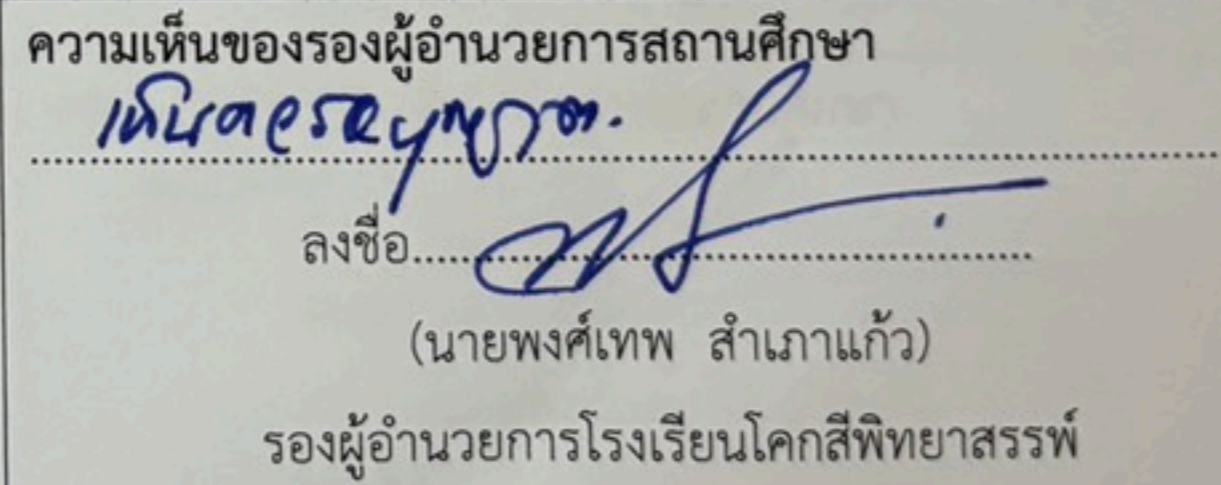 ความเห็นของรองผู้อำนวยการสถานศึกษา
เห็นควรอนุญาต.
ลงชื่อ
(นายพงศ์เทพ สำเภาแก้ว)
รองผู้อำนวยการโรงเรียนโคกสีพิทยาสรรพ์